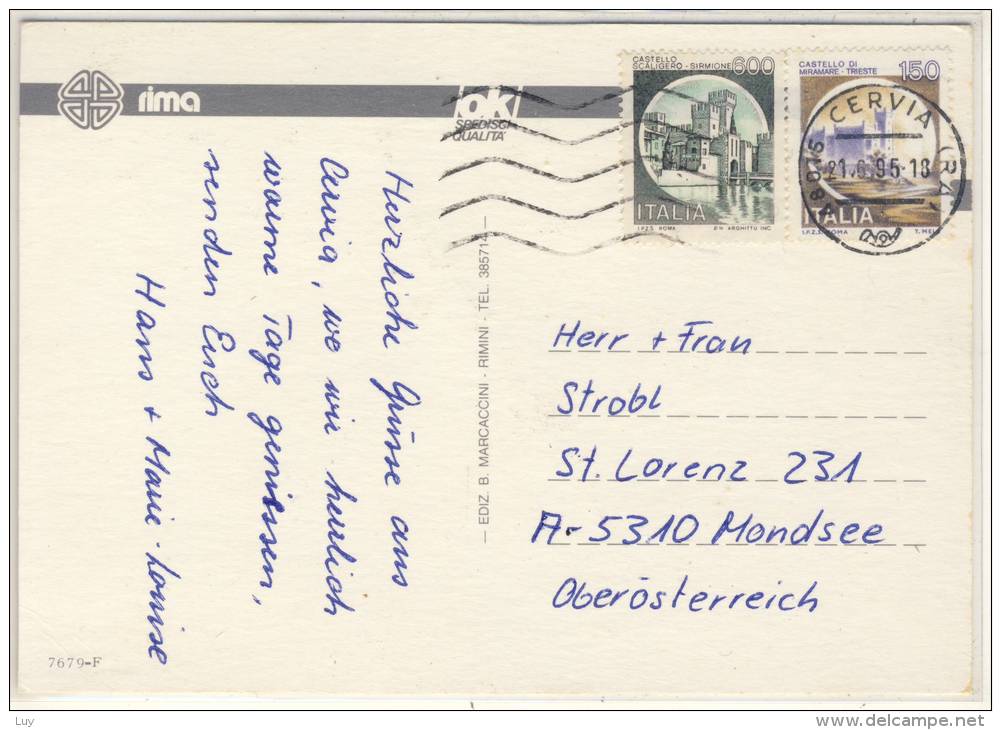 rima
ok
SPEDISCI
QUALITÀ
CASTELLO
SCALIGERO - SIRMIONE
600
ITALIA
I.P.Z.S. ROMA
CASTELLO DI
MIRAMARE - TRIESTE
150
ITALIA
I.P.Z.S. ROMA
48015 CERVIA (RA)
21.6.95-18
Herzliche Grüsse aus
Cervia, wo wir herrlich
warme Tage geniessen,
senden Euch
Hans + Marie-Louise
— EDIZ. B. MARCACCINI - RIMINI - TEL. 385714 —
Herr + Frau
Strobl
St. Lorenz 231
A-5310 Mondsee
Oberösterreich
7679-F
Luy
www.delcampe.net